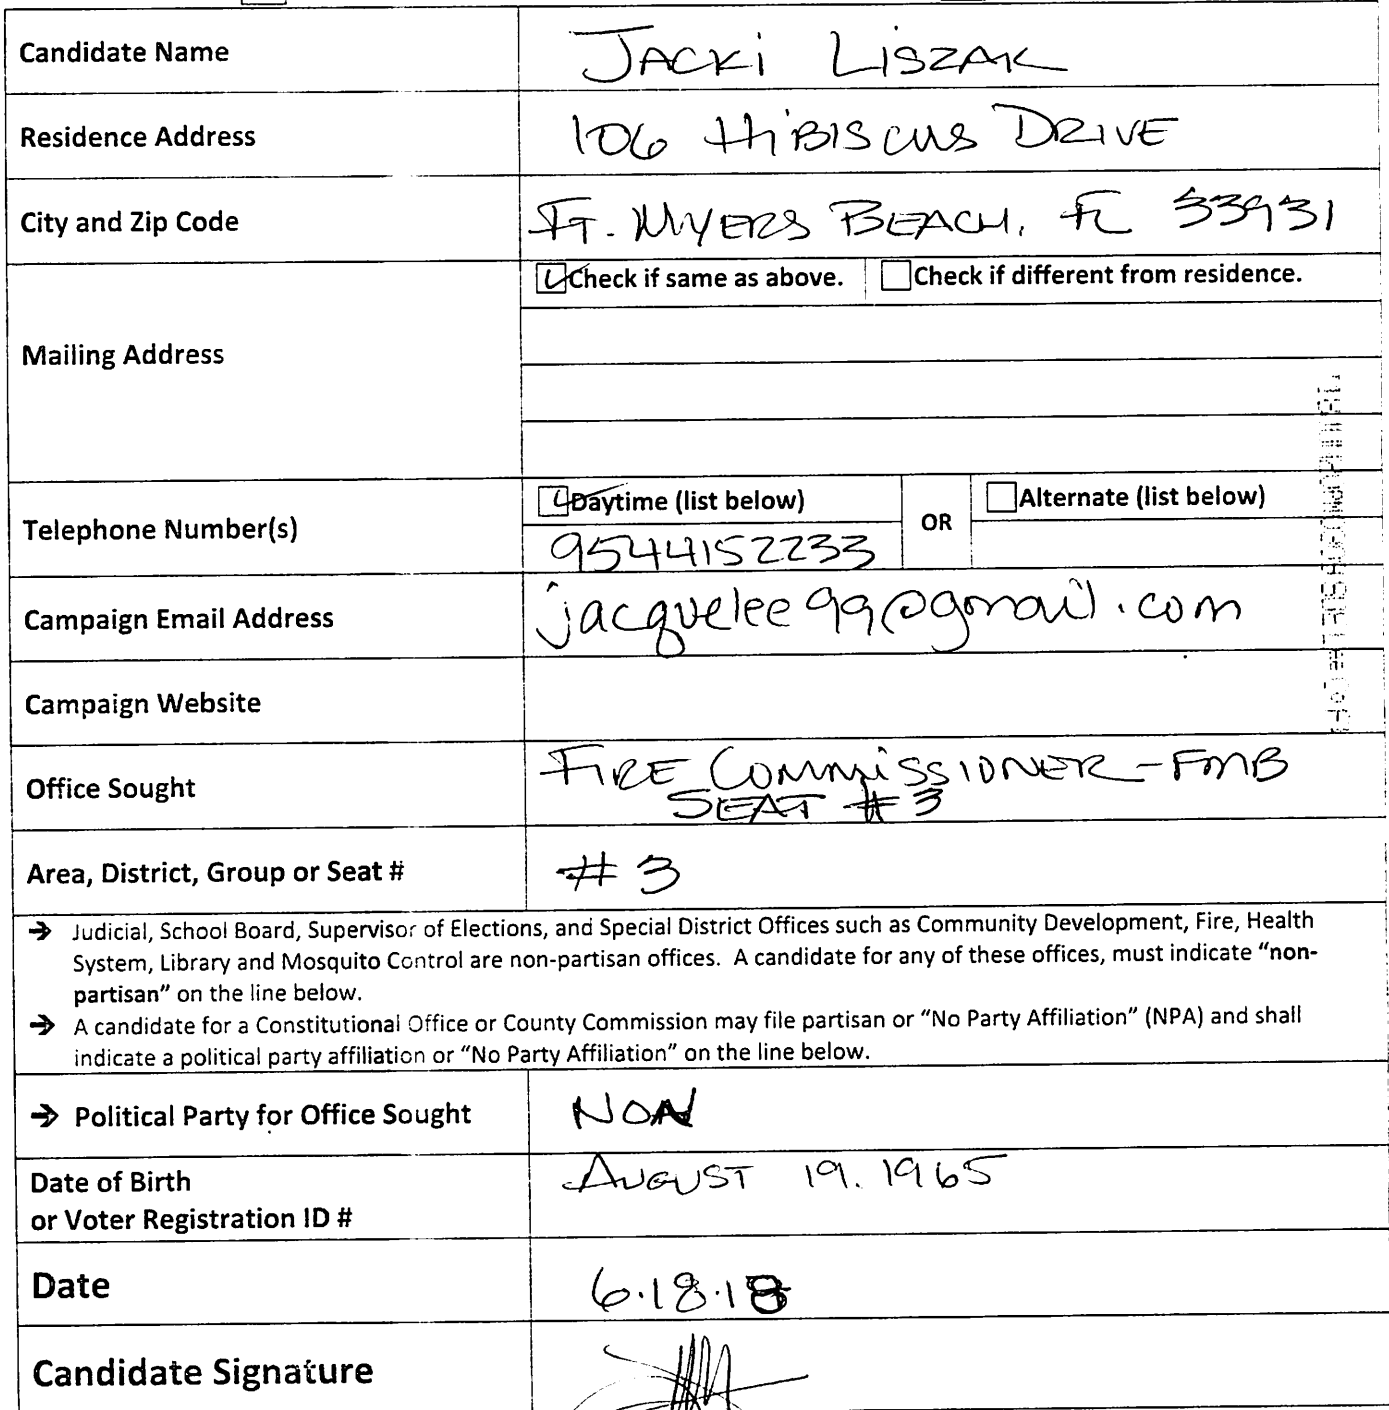 Candidate Name JACKi LISZAK
Residence Address 106 HiBISCUS DRIVE
City and Zip Code FT. MYERS BEACH, FL 33931
Check if same as above. Check if different from residence.
Mailing Address
Daytime (list below) OR Alternate (list below)
Telephone Number(s) 9544152233
Campaign Email Address jacquelee99@gmail.com
Campaign Website
Office Sought FIRE COMMiSSIONER-FMB
SEAT #3
Area, District, Group or Seat # # 3
→ Judicial, School Board, Supervisor of Elections, and Special District Offices such as Community Development, Fire, Health
System, Library and Mosquito Control are non-partisan offices. A candidate for any of these offices, must indicate "non-
partisan" on the line below.
→ A candidate for a Constitutional Office or County Commission may file partisan or "No Party Affiliation" (NPA) and shall
indicate a political party affiliation or "No Party Affiliation" on the line below.
→ Political Party for Office Sought NON
Date of Birth AUGUST 19. 1965
or Voter Registration ID #
Date 6.18.18
Candidate Signature